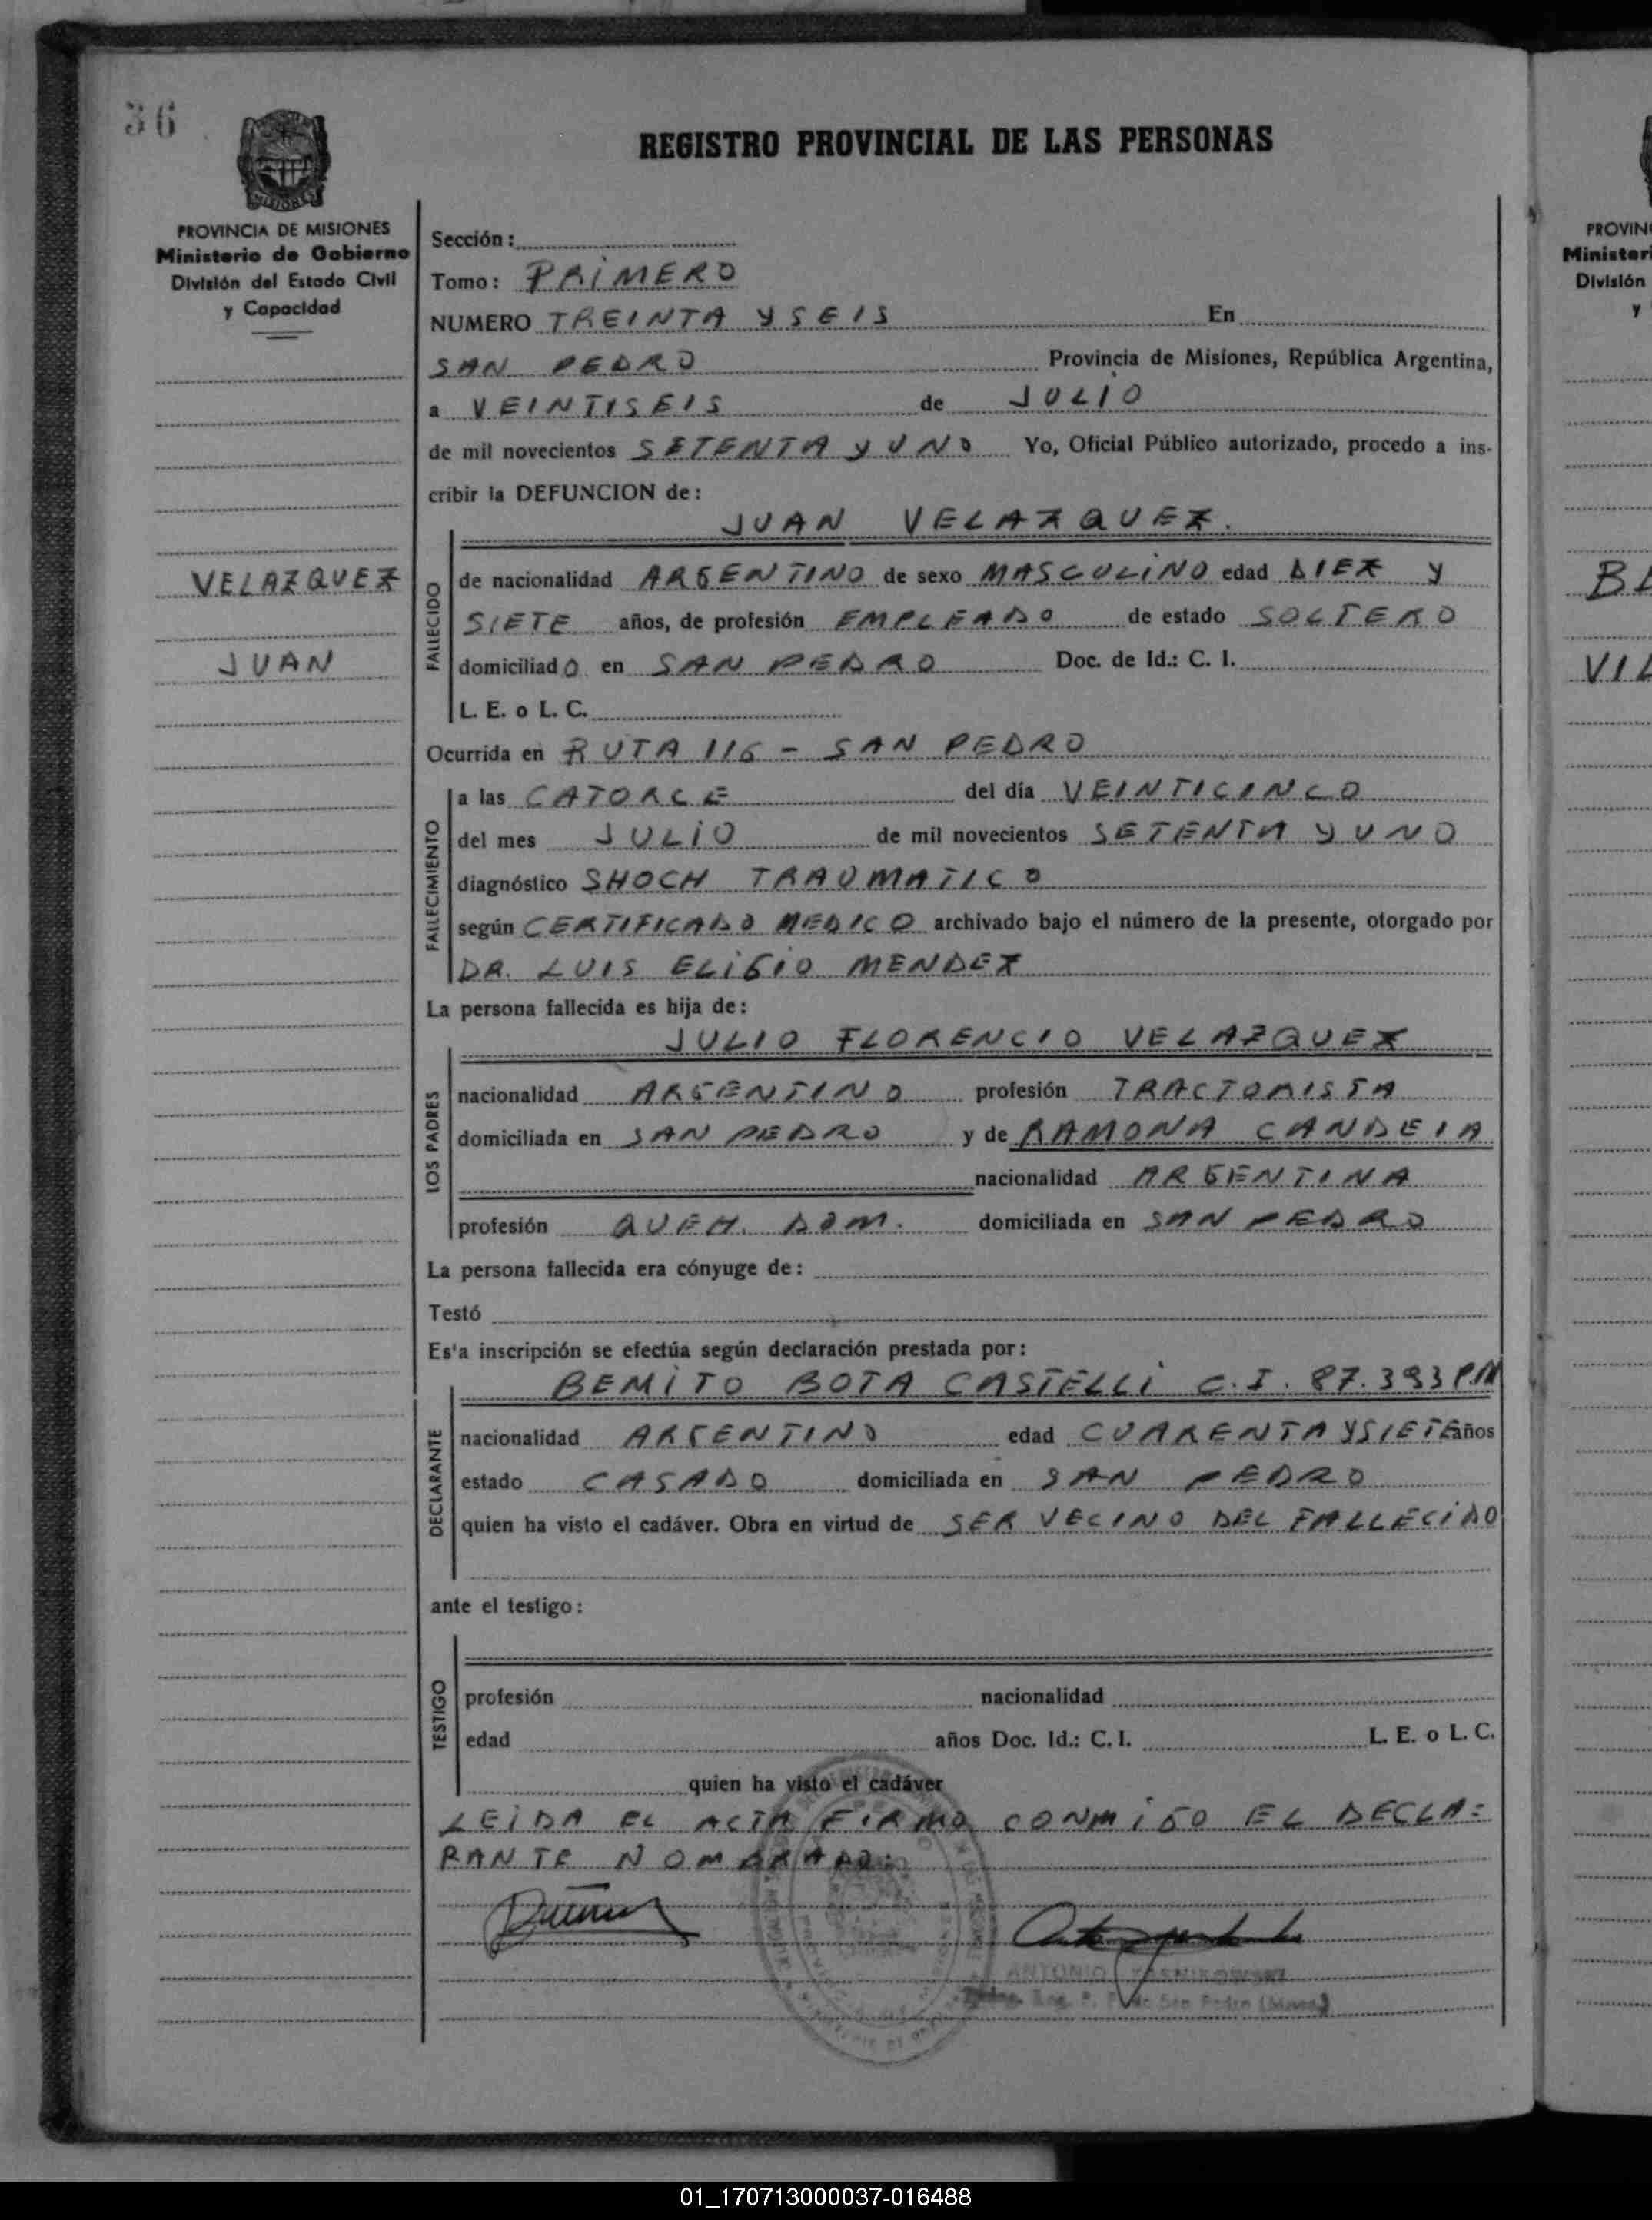 36
REGISTRO PROVINCIAL DE LAS PERSONAS
MISIONES
PROVINCIA DE MISIONES
Ministerio de Gobierno
División del Estado Civil
y Capacidad
VELAZQUEZ
JUAN
Sección:
Tomo: PRIMERO
NUMERO TREINTA Y SEIS En
SAN PEDRO Provincia de Misiones, República Argentina,
a VEINTISEIS de JULIO
de mil novecientos SETENTA y UNO Yo, Oficial Público autorizado, procedo a ins-
cribir la DEFUNCION de:
JUAN VELAZQUEZ.
FALLECIDO
de nacionalidad ARGENTINO de sexo MASCULINO edad DIEZ y
SIETE años, de profesión EMPLEADO de estado SOLTERO
domiciliado en SAN PEDRO Doc. de Id.: C. I.
L. E. o L. C.
Ocurrida en RUTA 116 - SAN PEDRO
FALLECIMIENTO
a las CATORCE del día VEINTICINCO
del mes JULIO de mil novecientos SETENTA y UNO
diagnóstico SHOCH TRAUMATICO
según CERTIFICADO MEDICO archivado bajo el número de la presente, otorgado por
DR. LUIS ELIGIO MENDEZ
La persona fallecida es hija de:
JULIO FLORENCIO VELAZQUEZ
LOS PADRES
nacionalidad ARGENTINO profesión TRACTORISTA
domiciliada en SAN PEDRO y de RAMONA CANDEIA
nacionalidad ARGENTINA
profesión QUEH. DOM. domiciliada en SAN PEDRO
La persona fallecida era cónyuge de:
Testó
Es'a inscripción se efectúa según declaración prestada por:
BEMITO BOTA CASTELLI C.I. 87.393 PM
DECLARANTE
nacionalidad ARGENTINO edad CUARENTA Y SIETE años
estado CASADO domiciliada en SAN PEDRO
quien ha visto el cadáver. Obra en virtud de SER VECINO DEL FALLECIDO
ante el testigo:
TESTIGO
profesión nacionalidad
edad años Doc. Id.: C. I. L. E. o L. C.
quien ha visto el cadáver
LEIDA EL ACTA FIRMO CONMIGO EL DECLA=
RANTE NOMBRADO.
ANTONIO
San Pedro
PROVIN
Minister
División
y
BA
VIL
01_170713000037-016488